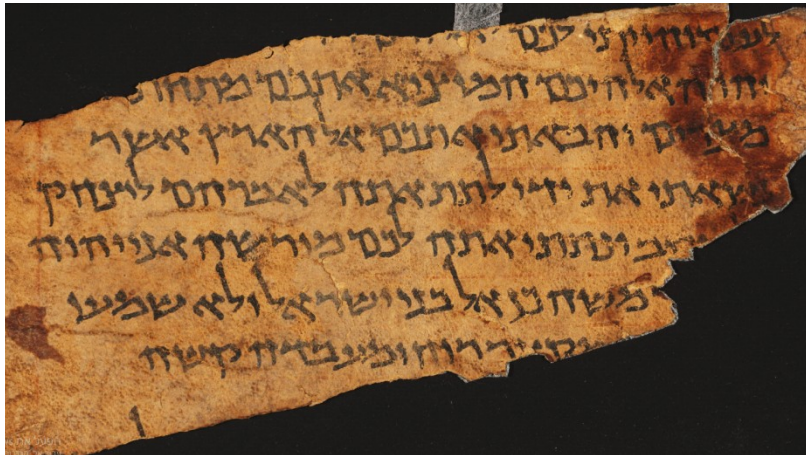 לעם והייתי לכם
יהוה אלהיכם המוציא אתכם מתחת
מצרים והבאתי אתכם אל הארץ אשר
נשאתי את ידי לתת אתה לאברהם ליצחק
ונתתי אתה לכם מורשה אני יהוה
משה כן אל בני ישראל ולא שמעו
רוח ומעבדה קשה
ו